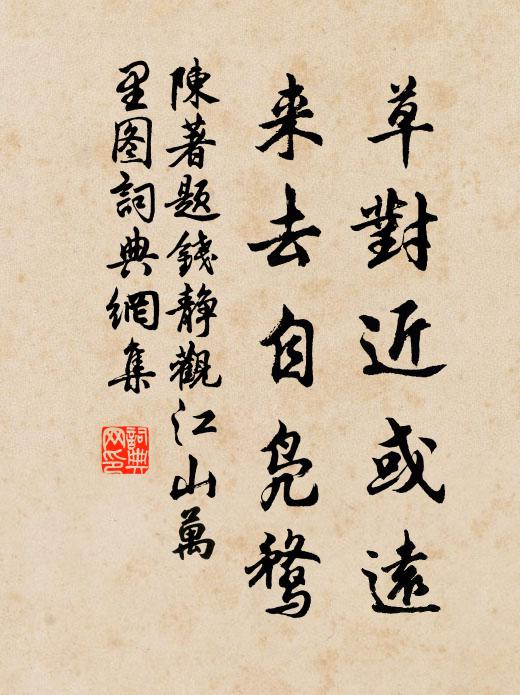 草對近或遠
来去自鳧鶩
陳著題錢静觀江山萬
里图詞典網集
詞典网印